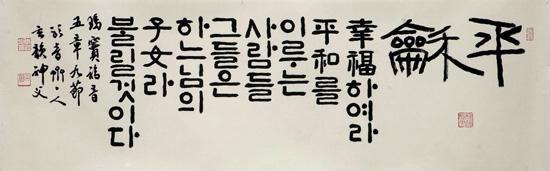 平龢
幸福하여라
平和를
이루는
사람들
그들은
하느님의
子女라
불릴것이다
瑪竇福音
五章九節
人
神父